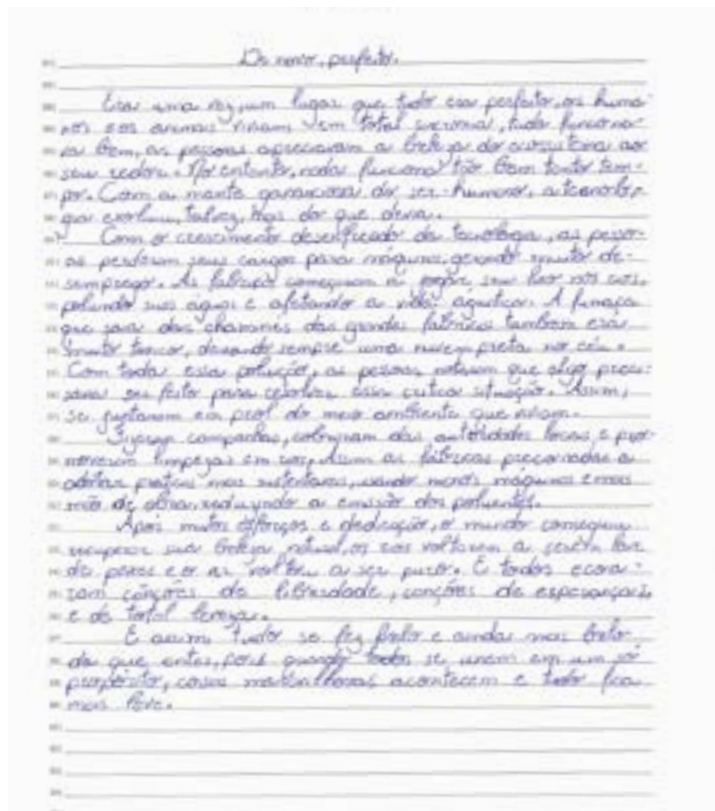 De novo, perfeito.
Era uma vez, um lugar que tudo era perfeito, os huma
nos e os animais viviam em total sincronia, tudo funciona
va bem, as pessoas apreciavam a beleza do ecossistema ao
seu redor. No entanto, nada funciona tão bem tanto tem-
po. Com a mente gananciosa do ser-humano, a tecnolo-
gia evoluiu, talvez, mais do que devia.
Com o crescimento desenfreado da tecnologia, as pesso-
as perderam seus cargos para máquinas, gerando muito de-
semprego. As fábricas começaram a jogar seu lixo nos rios,
poluindo suas águas e afetando a vida aquática. A fumaça
que saia das chaminés das grandes fábricas também era
muito tóxica, deixando sempre uma nuvem preta no céu.
Com toda essa poluição, as pessoas notaram que algo preci-
sava ser feito para resolver essa crítica situação. Assim,
se juntaram em prol do meio ambiente que viviam.
Fizeram campanhas, cobraram das autoridades locais, e pro-
moveram limpezas em rios, Assim as fábricas pressionadas a
adotar práticas mais sustentáveis, usando menos máquinas e mais
mão de obra, reduzindo a emissão dos poluentes.
Após muitos esforços e dedicação, o mundo conseguiu
recuperar sua beleza natural, os rios voltaram a serem lar
de peixes e o ar voltou a ser puro. E todos ecoa-
ram canções de liberdade, canções de esperança
e de total leveza.
E assim tudo se fez belo e ainda mais belo
do que antes, pois quando todos se unem em um só
propósito, coisas maravilhosas acontecem e tudo fica
mais leve.